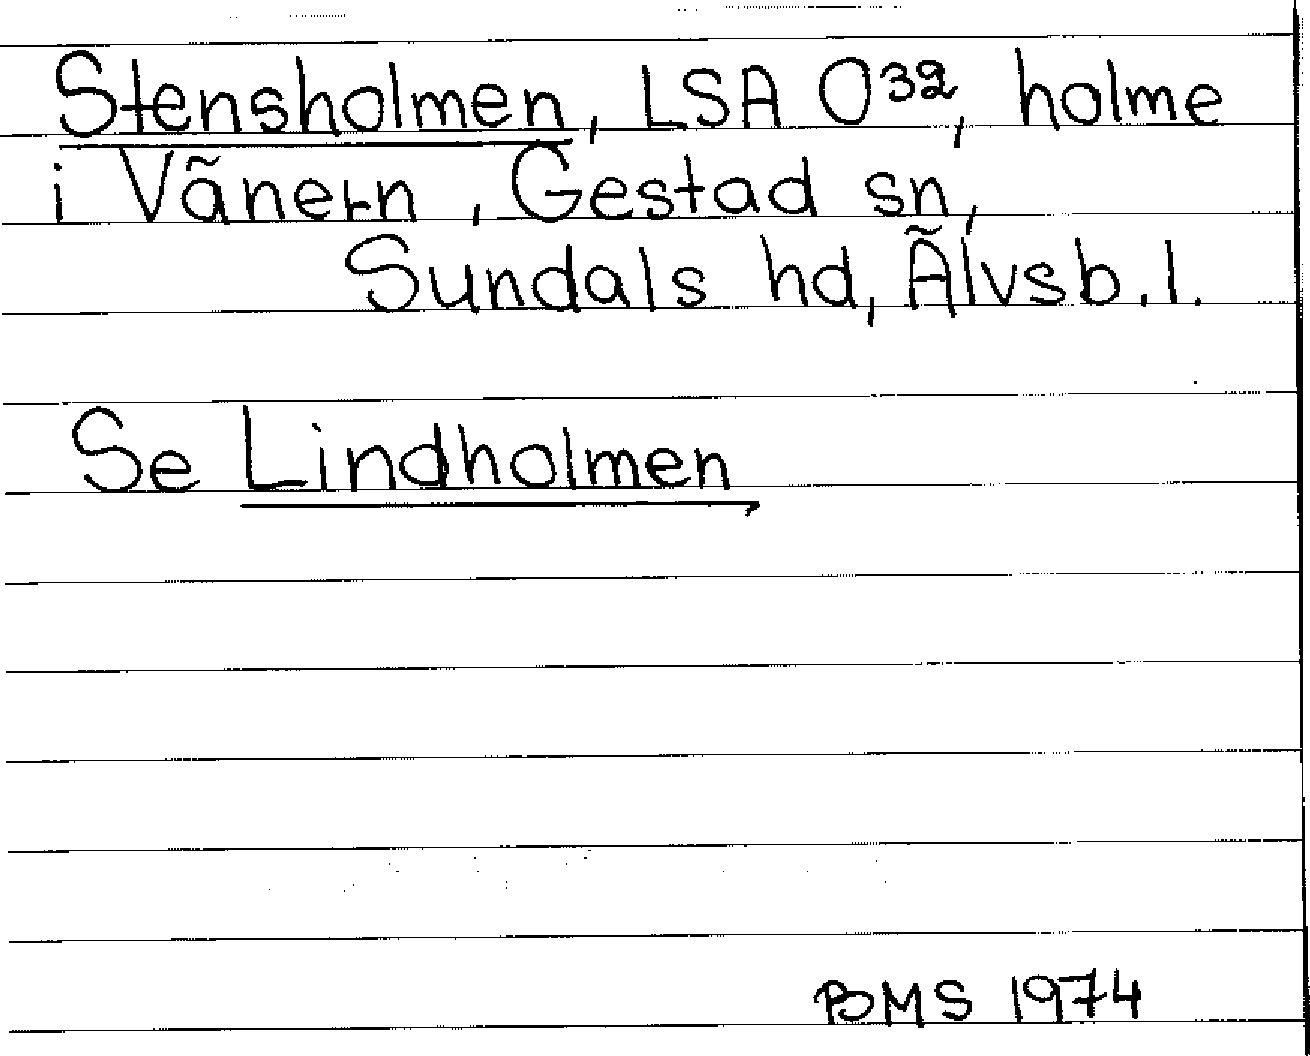 Stensholmen, LSA O³², holme
i Vänern, Gestad sn,
Sundals hd, Älvsb. l.
Se Lindholmen
BMS 1974